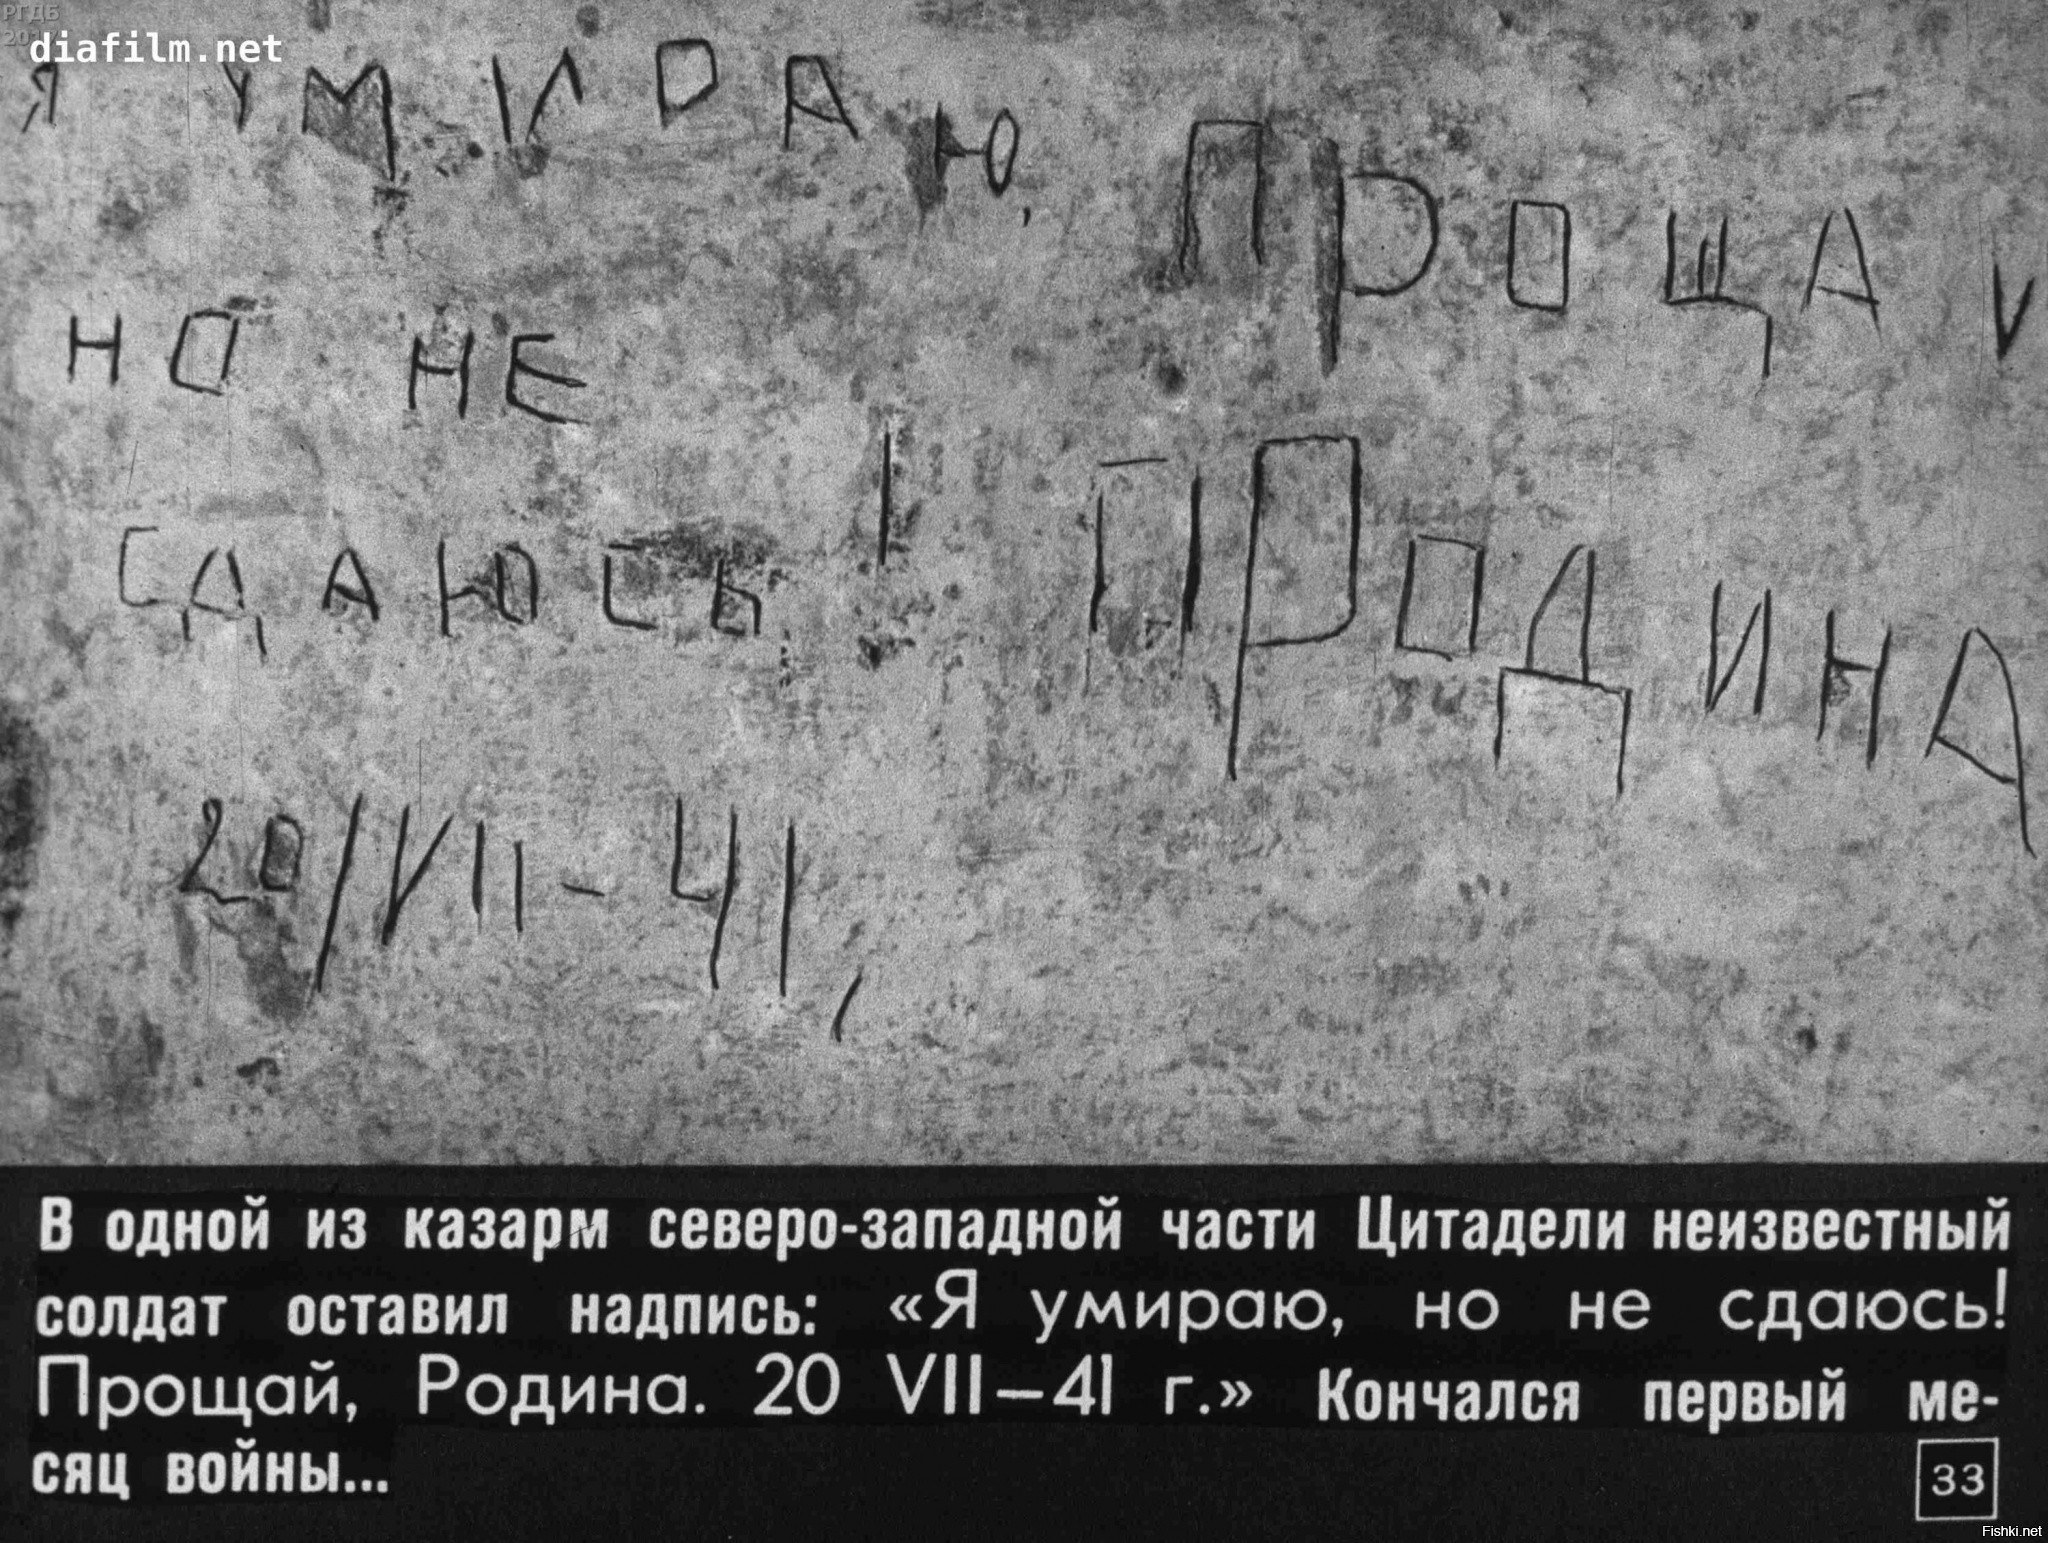 РГДБ
diafilm.net
Я УМИРАЮ,
НО НЕ
СДАЮСЬ!
20/VII-41,
ПРОЩАЙ
РОДИНА
В одной из казарм северо-западной части Цитадели неизвестный
солдат оставил надпись: «Я умираю, но не сдаюсь!
Прощай, Родина. 20 VII–41 г.» Кончался первый ме-
сяц войны...
33
Fishki.net